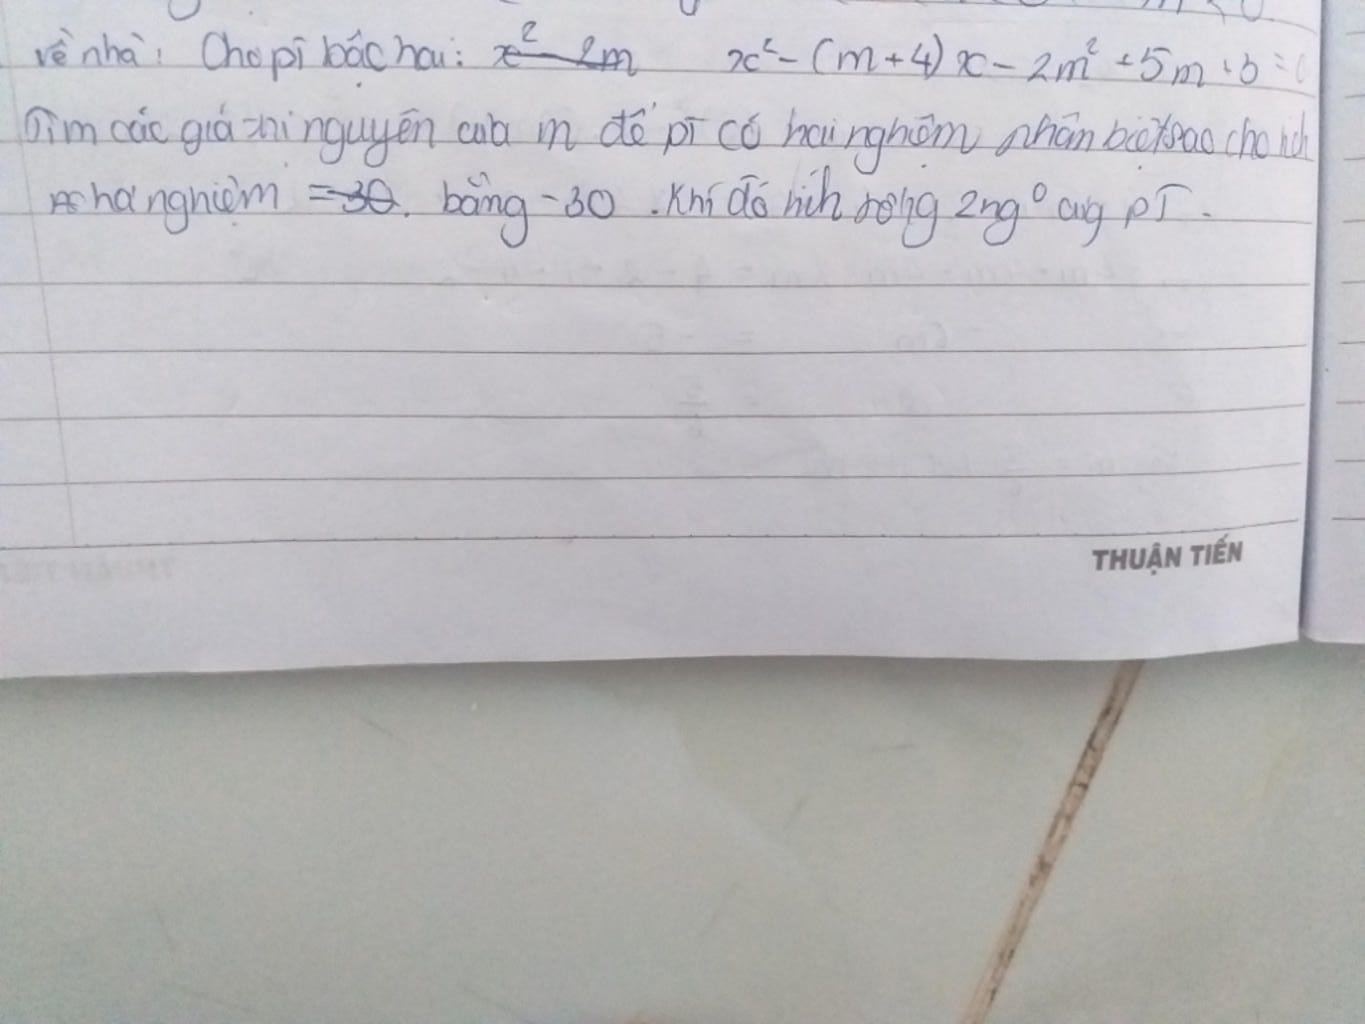 về nhà: Cho pT bậc hai: x² - 2m x² - (m + 4)x - 2m² + 5m + 3 = 0
Tìm các giá trị nguyên của m để pT có hai nghiệm phân biệt sao cho tích
hai nghiệm = -30. bằng -30. Khi đó tính tổng 2 ng⁰ của pT.
THUẬN TIẾN